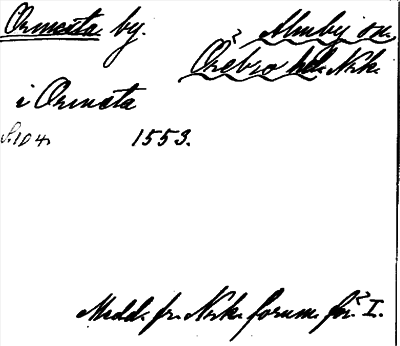 Ormesta by. Almby sn.
Örebro hd. Nrk.
i Ormesta
S. 104. 1553.
Medd. fr. Nrk. fornm. för. I.